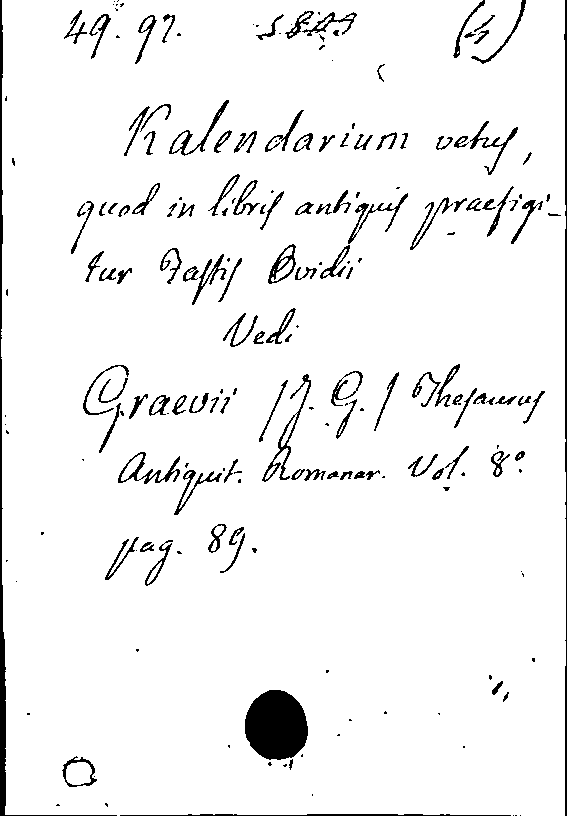 49. 97.
Kalendarium vetus,
quod in libris antiquis praefigi-
tur Fastis Ovidii
Vedi
Graevii /J. G./ Thesaurus
Antiquit. Romanar. Vol. 8º
pag. 89.